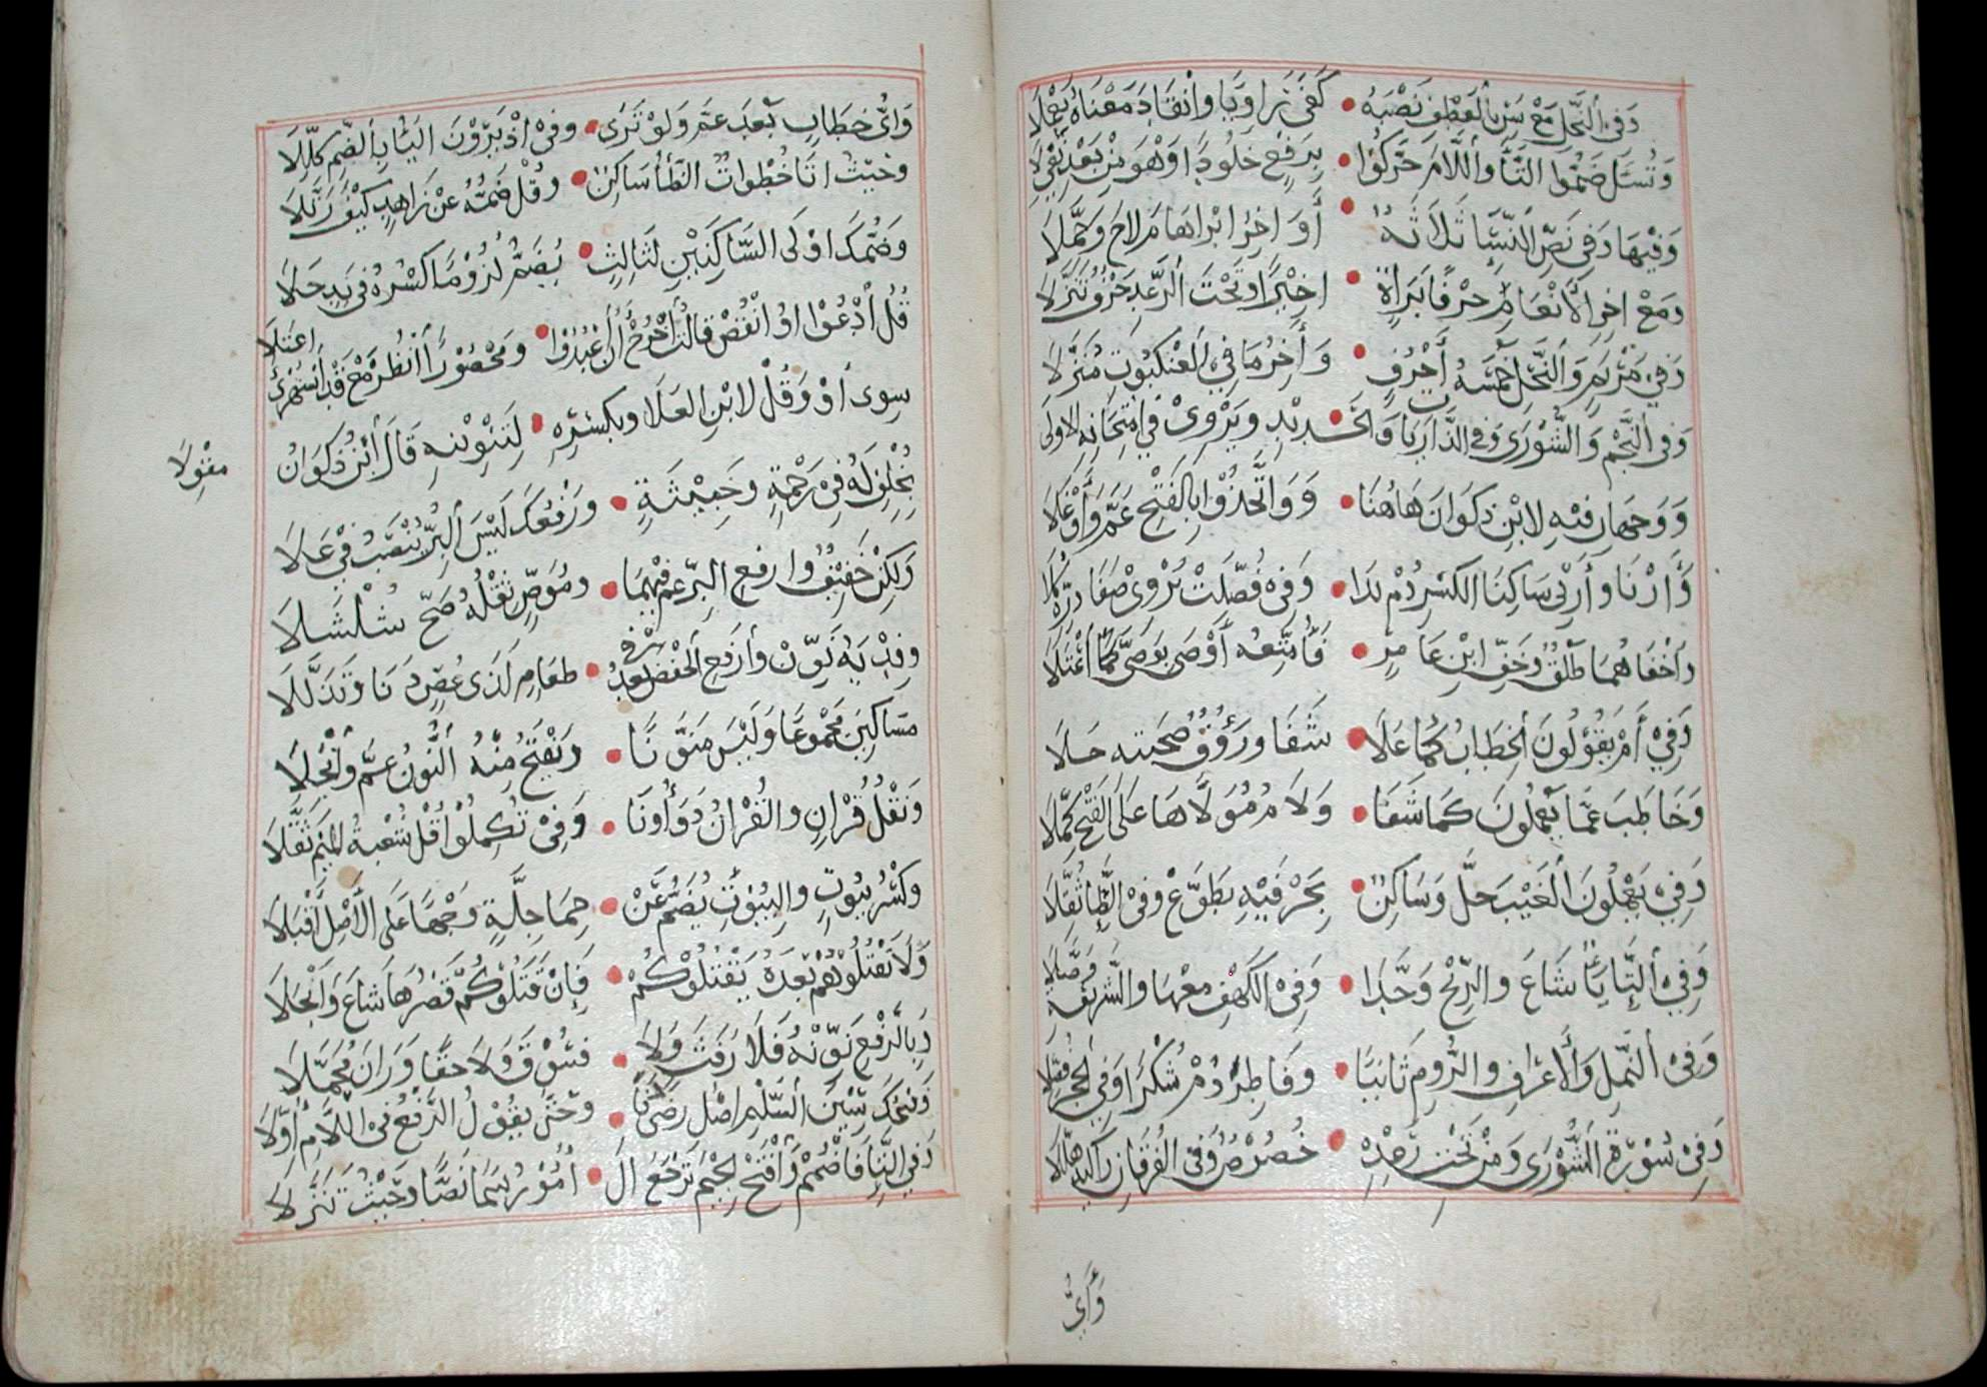 وَفِي النَّحْلِ مَعْ يس بِالْعَطْفِ نَصْبُهُ • كَفَى رَاوِيًا وَانْقَادَ مَعْنَاهُ يَعْمُلَا
وَتُسْئَلُ ضَمُّوا التَّاءَ وَاللَّامَ حَرَّكُوا • بِرَفْعٍ خُلُودًا وَهْوَ مِنْ بَعْدِ نَفْيِ لَا
وَفِيهَا وَفِي نَصِّ النِّسَاءِ ثَلَاثَةٌ • أَوَاخِرُ ابْرَاهَامَ لَاحَ وَجَمَّلَا
وَمَعْ اخِرِ الْأَنْعَامِ حَرْفَا بَرَاءَةٍ • اخِيرًا وَتَحْتَ الرَّعْدِ حَرْفٌ تَنَزَّلَا
وَفِي مَرْيَمٍ وَالنَّحْلِ خَمْسَةُ أَحْرُفٍ • وَأَخِرُ مَا فِي الْعَنْكَبُوتِ مُنَزَّلَا
وَفِي النَّجْمِ وَالشُّورَى وَفِي الذَّارِيَاتِ وَالْحَدِيدِ • وَيَرْوِي فِي امْتِحَانِهِ الاولَى
وَوَجْهَانِ فِيهِ لِابْنِ ذَكْوَانَ هَاهُنَا • وَوَاتَّخِذُوا بِالْفَتْحِ عَمَّ وَأَوْغَلَا
وَأَرْنَا وَأَرْنِي سَاكِنَا الْكَسْرِ دُمْ يَدًا • وَفِي فُصِّلَتْ يُرْوِي صَفَا دَرِّهِ كُلَا
وَأَخْفَاهُمَا طَلْقٌ وَخِفُّ ابْنِ عَامِرٍ • فَأُمْتِعُهُ أَوْصَى بِوَصَّى كَمَا اعْتَلَا
وَفِي أَمْ يَقُولُونَ الْخِطَابُ كَمَا عَلَا • شَفَا وَرَؤُفٌ صُحْبَتِهِ حَلَا
وَخَاطَبَ عَمَّا يَعْمَلُونَ كَمَا شَفَا • وَلَامُ مُوَلَّاهَا عَلَى الْفَتْحِ كَمَّلَا
وَفِي يَعْمَلُونَ الْغَيْبَ حَلَّ وَسَاكِنٌ • بِحَرْفَيْهِ يَطَّوَّعْ وَفِي الطَّاءِ ثُقِّلَا
وَفِي التَّاءِ يَاءٌ شَاعَ وَالرِّيحَ وَحَّدَا • وَفِي الْكَهْفِ مَعْهَا وَالشَّرِيعَةِ وَصَّلَا
وَفِي النَّمْلِ وَالْأَعْرَافِ وَالرُّومِ ثَانِيًا • وَفَاطِرِ دُمْ شُكْرًا وَفِي الْحِجْرِ فُصِّلَا
وَفِي سُورَةِ الشُّورَى وَمِنْ تَحْتِ رَعْدِهِ • خُصُوصٌ وَفِي الْفُرْقَانِ زَاكِيهِ هَلَّلَا
وَأَيُّ
وَأَيُّ خِطَابٍ بَعْدَ عَمَّ وَلَوْ تَرَى • وَفِي اذْ يَرَوْنَ الْيَاءُ بِالضَّمِّ كُلِّلَا
وَحَيْثُ اتَا خُطْوَاتٌ الطَّاءُ سَاكِنٌ • وَقُلْ ضَمُّهُ عَنْ زَاهِدٍ كَيْفَ رَتَّلَا
وَضَمُّكَ اوْلَى السَّاكِنَيْنِ لِثَالِثٍ • يُضَمُّ لُزُومًا كَسْرُهُ فِي نَدٍ حَلَا
قُلُ ادْعُوا اوُ انْقُصْ قَالَتُ اخْرُجْ أَنُ اعْبُدُوا • وَمَحْظُورًا انْظُرْ مَعْ قَدُ اسْتُهْزِئَ اعْتَلَا
سِوَى أَوْ وَقُلْ لِابْنِ الْعَلَا وَبِكَسْرِهِ • لِتَنْوِينِهِ قَالَ ابْنُ ذَكْوَانَ
مِقْوَلَا
بِخُلْفٍ لَهُ فِي رَحْمَةٍ وَخَبِيثَةٍ • وَرَفْعُكَ لَيْسَ الْبِرُّ يُنْصَبُ فِي عَلَا
وَلَكِنْ خَفِيفٌ وَارْفَعِ الْبِرَّ عَمَّ فِيهِمَا • وَمُوَصٍّ ثِقْلُهُ صَحَّ شُلْشُلَا
وَفِدْيَةُ نَوِّنْ وَارْفَعِ الْخَفْضَ بَعْدُ فِي • طَعَامٍ لَدَى غُصْنٍ دَنَا وَتَذَلَّلَا
مَسَاكِينَ مَجْمُوعًا وَلَيْسَ مُنَوَّنًا • وَيُفْتَحُ مِنْهُ النُّونُ عَمَّ وَأَبْجَلَا
وَنَقْلُ قُرَانٍ وَالْقُرَانُ دَوَاؤُنَا • وَفِي تُكْمِلُوا قُلْ شُعْبَةُ الْمِيمَ ثَقَّلَا
وَكَسْرُ بُيُوتٍ وَالْبُيُوتَ يُضَمُّ عَنْ • حِمَا جِلَّةٍ وَجْهًا عَلَى الْأَصْلِ أَقْبَلَا
وَلَا تَقْتُلُوهُمْ بَعْدَهُ يَقْتُلُوكُمُ • فَإِنْ قَتَلُوكُمْ قَصْرُهَا شَاعَ وَانْجَلَا
وَبِالرَّفْعِ نَوِّنْهُ فَلَا رَفَثٌ وَلَا • فُسُوقٌ وَلَا حَقًّا وَزَانَ مُجَمَّلَا
وَفَتْحُكَ سِينَ السِّلْمِ اصْلُ رِضًى دَنَا • وَحَتَّى يَقُولُ الرَّفْعُ فِي اللَّامِ أُوِّلَا
وَفِي التَّاءِ فَاضْمُمْ وَافْتَحِ الْجِيمَ تَرْجَعُ ال • أُمُورُ سَمَا نَصًّا وَحَيْثُ تَنَزَّلَا